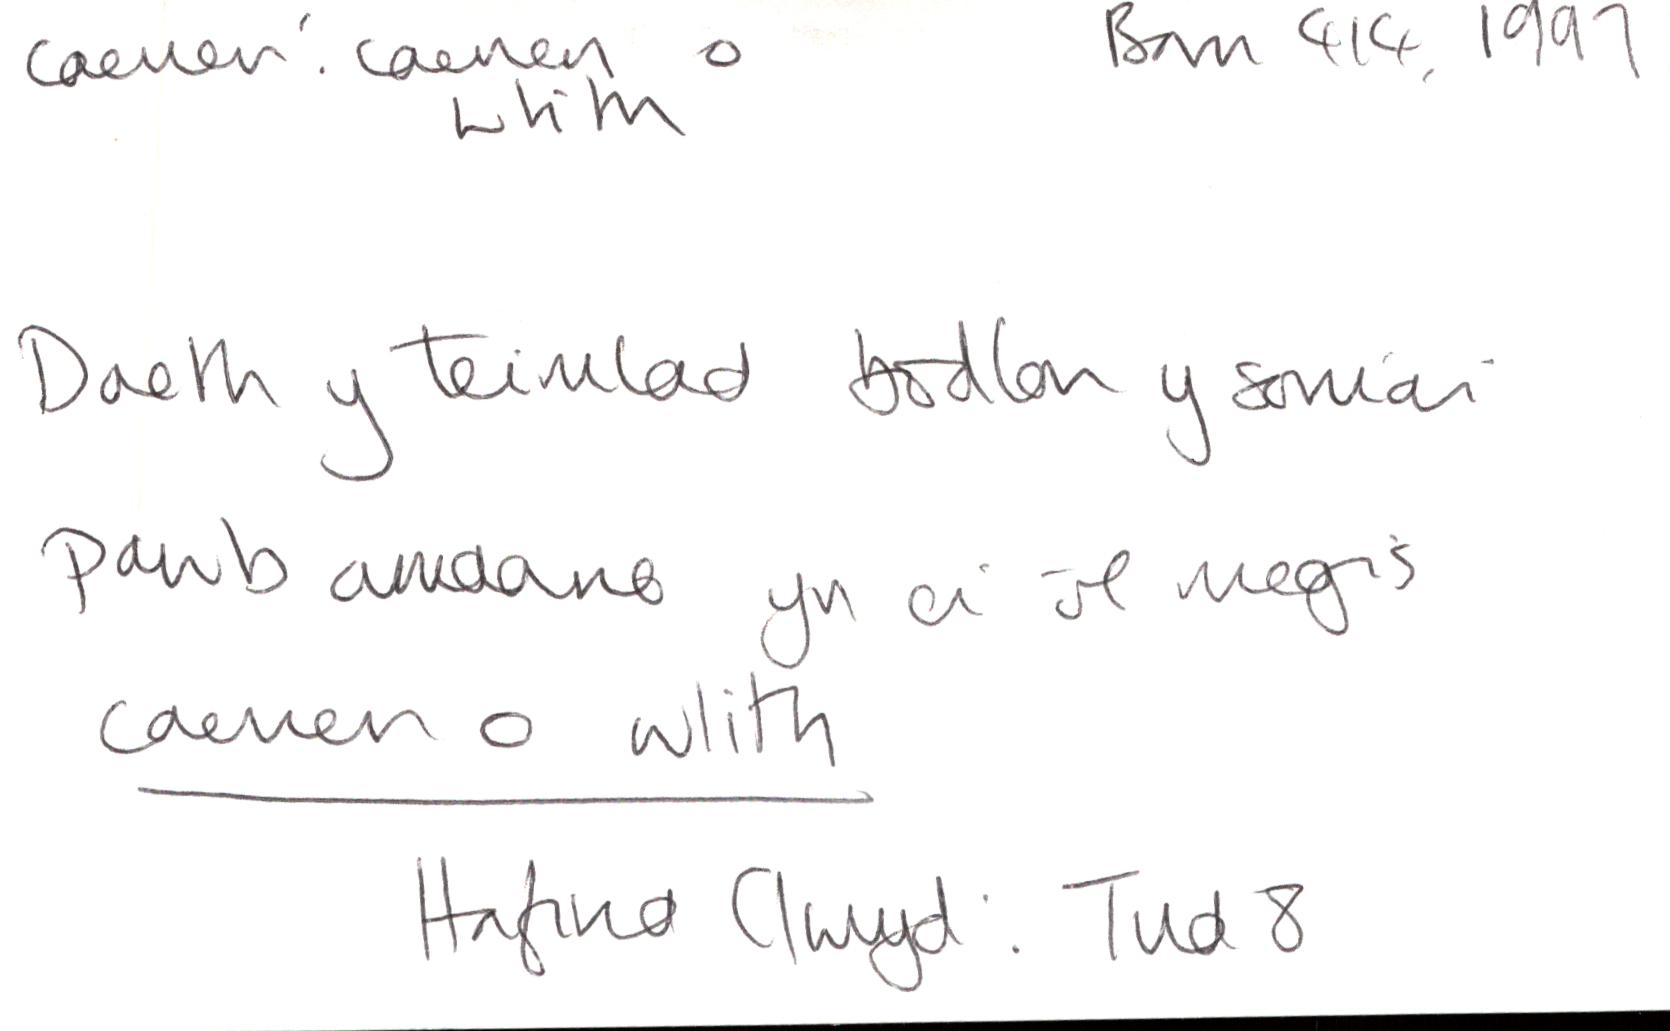 caenen: caenen o Barn 414, 1997
wlith
Daeth y teimlad bodlon y soniai
pawb amdano yn ei ôl megis
caenen o wlith
Hafina Clwyd: Tud 8